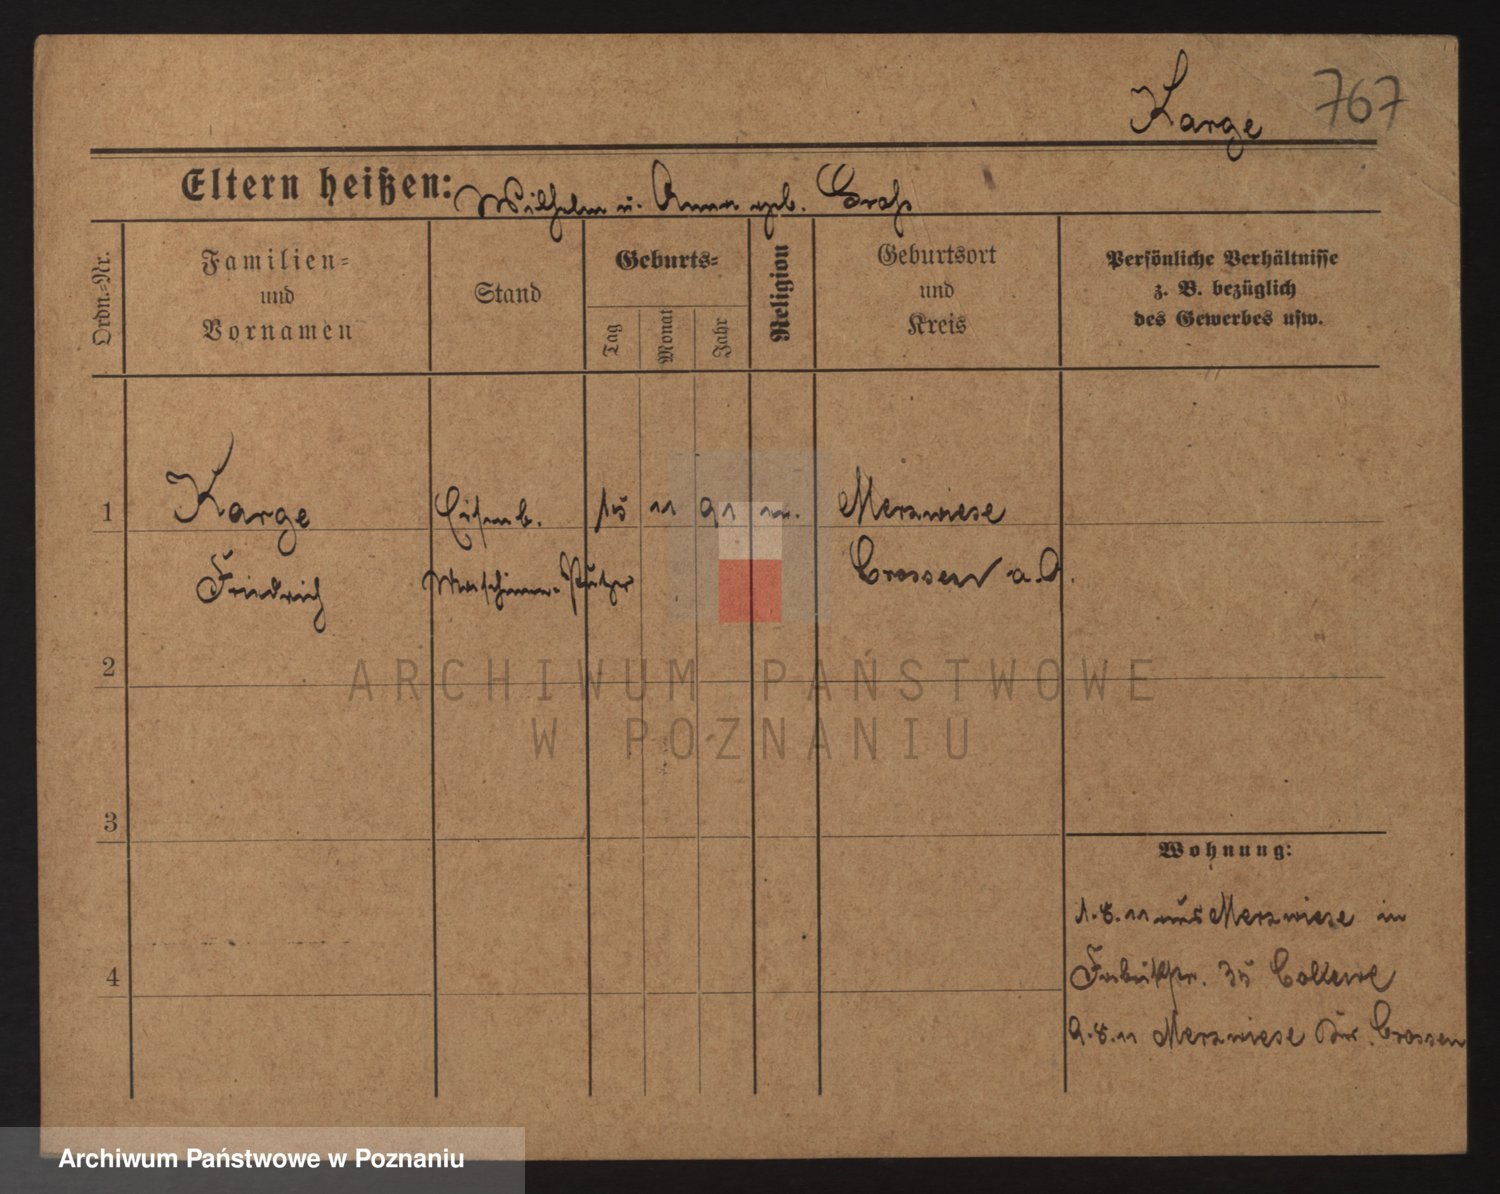 Karge 767
Eltern heißen: Wilhelm u. Anna geb. Groß
Ordn.-Nr.
Familien-
und
Vornamen
Stand
Geburts-
Tag
Monat
Jahr
Religion
Geburtsort
und
Kreis
Persönliche Verhältnisse
z. B. bezüglich
des Gewerbes usw.
1 Karge Eisenb. 15 11 91 Merzwiese
Friedrich Maschinen-Putzer Crossen a.O.
2
ARCHIWUM PAŃSTWOWE
W POZNANIU
3
4
Wohnung:
1.8.11 aus Merzwiese in
Fabrikstr. 35
9.8.11 Merzwiese Crossen
Archiwum Państwowe w Poznaniu